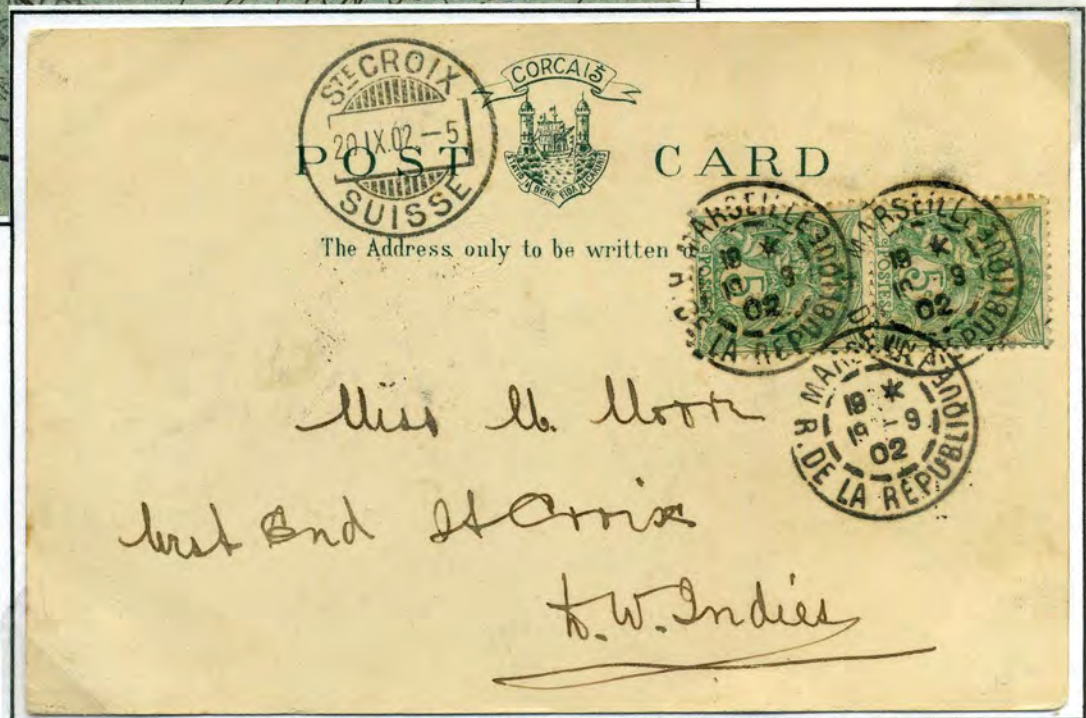 STE CROIX
20 IX.02.–5
SUISSE
CORCAIŠ
STATIO BENE FIDA CARINIS
POST CARD
The Address only to be written
MARSEILLE
19 * 19 9 02
R. DE LA REPUBLIQUE
5
POSTES
MARSEILLE
19 * 19 9 02
R. DE LA REPUBLIQUE
5
POSTES
19 *
19 – 9
02
R. DE LA REPUBLIQUE
Miss M. Moore
West End St Croix
D. W. Indies